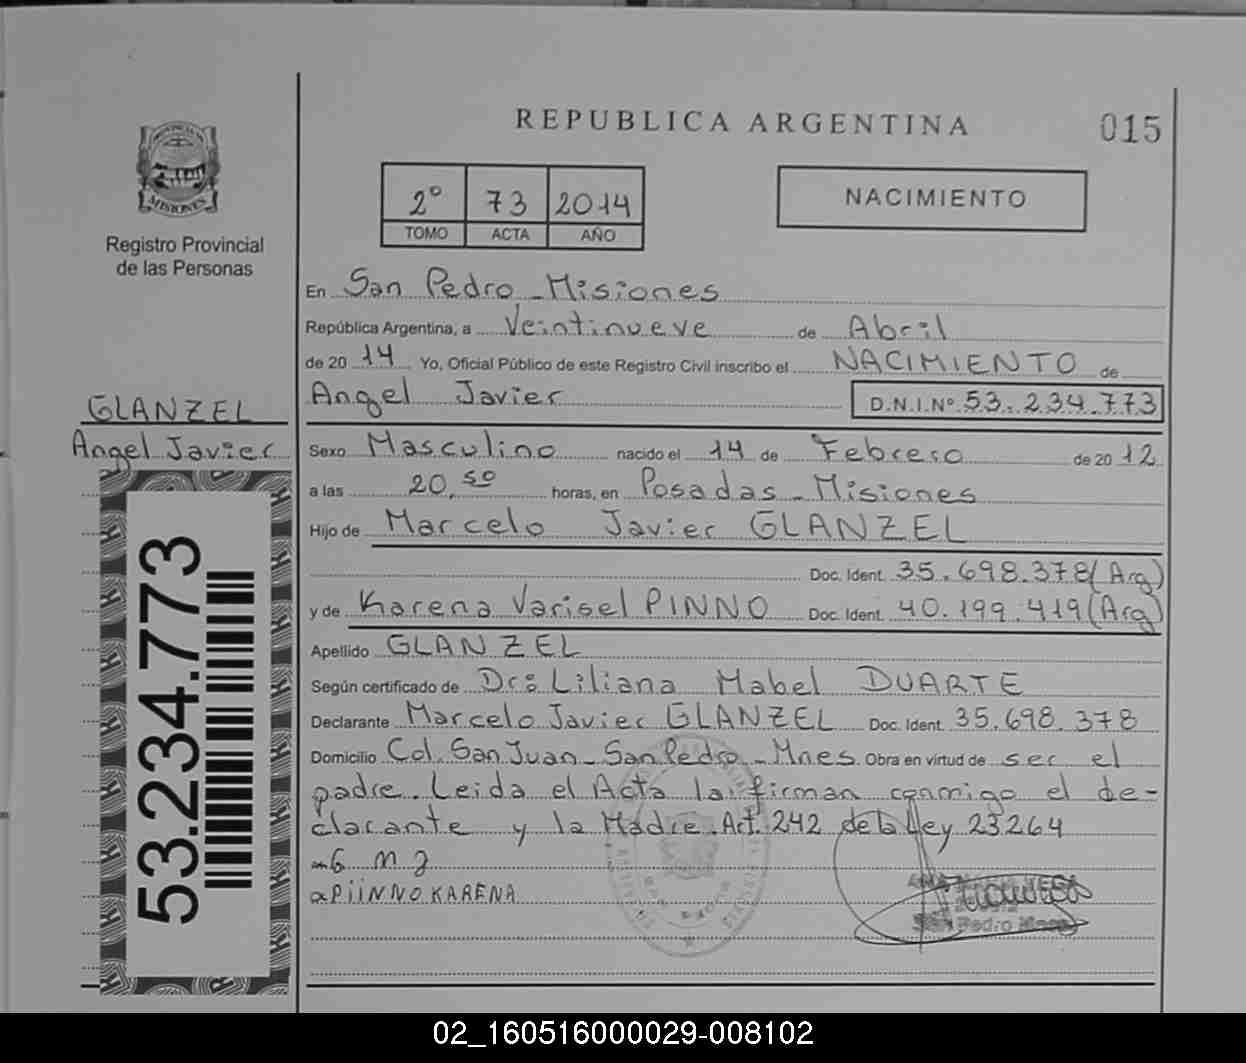 REPUBLICA ARGENTINA
015
MISIONES
Registro Provincial
de las Personas
2º 73 2014
TOMO ACTA AÑO
NACIMIENTO
En San Pedro - Misiones
República Argentina, a Veintinueve de Abril
de 20 14 Yo, Oficial Público de este Registro Civil inscribo el NACIMIENTO de
Angel Javier D.N.I.Nº 53.234.773
GLANZEL
Angel Javier
53.234.773
Sexo Masculino nacido el 14 de Febrero de 20 12
a las 20,50 horas, en Posadas - Misiones
Hijo de Marcelo Javier GLANZEL
Doc. Ident. 35.698.378 (Arg)
y de Karena Varisel PINNO Doc. Ident. 40.199.419 (Arg)
Apellido GLANZEL
Según certificado de Dra: Liliana Mabel DUARTE
Declarante Marcelo Javier GLANZEL Doc. Ident. 35.698.378
Domicilio Col. San Juan - San Pedro - Mnes. Obra en virtud de ser el
padre. Leida el Acta la firman conmigo el de-
clarante y la Madre. Art. 242 de la Ley 23264
PiiNNO KARENA
Pedro
02_160516000029-008102